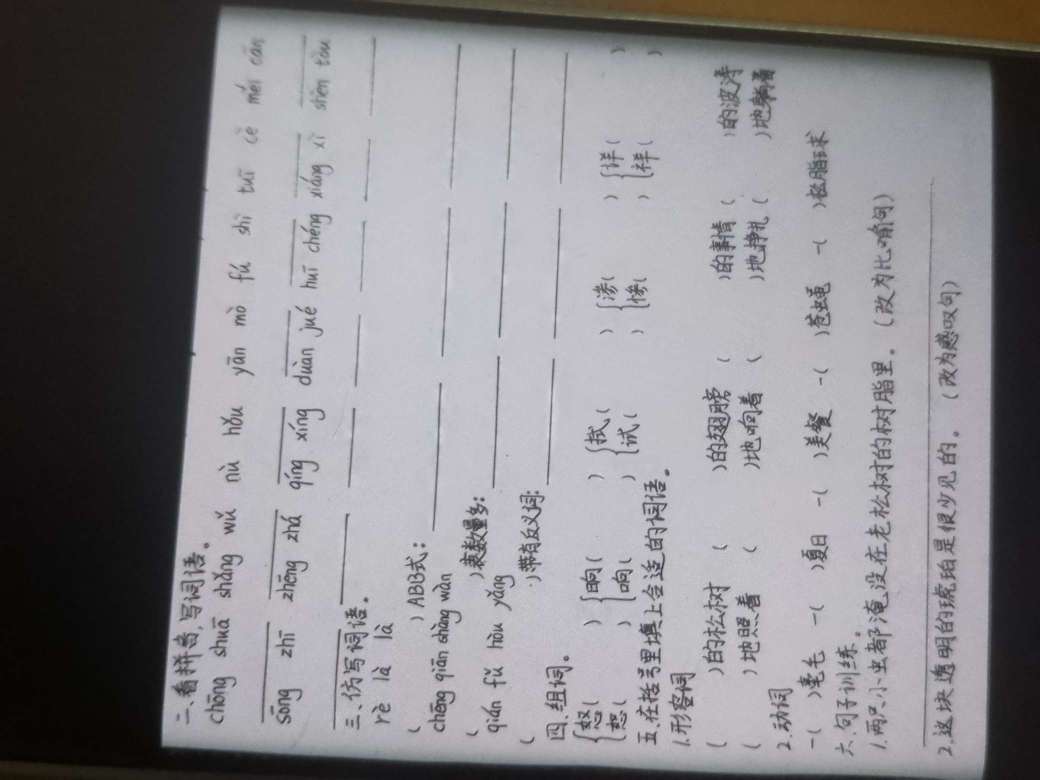 二、看拼音,写词语。
chōng shuā shǎng wǔ nù hǒu yān mò fú shì tuī cè měi cān
sōng zhī zhēng zhá qíng xíng duàn jué huī chéng xiáng xì shèn tòu
三、仿写词语。
rè là là
( ) ABB式:
chéng qiān shàng wàn
( )表数量多:
qián fǔ hòu yǎng
( )带有反义词:
四、组词。
怒( ) 晌( ) 拭( ) 渗( ) 详(
恕( ) 响( ) 试( ) 惨( ) 祥( )
五、在括号里填上合适的词语。
1.形容词
( )的松树 ( )的翅膀 ( )的事情 ( )的波涛
( )地照着 ( )地响着 ( )地挣扎 ( )地躺着
2.动词
一( )毫毛 一( )夏日 一( )美餐 一( )苍蝇 一( )松脂球
六、句子训练。
1.两只小虫都淹没在老松树的树脂里。(改为比喻句)
2.这块透明的琥珀是很少见的。(改为感叹句)